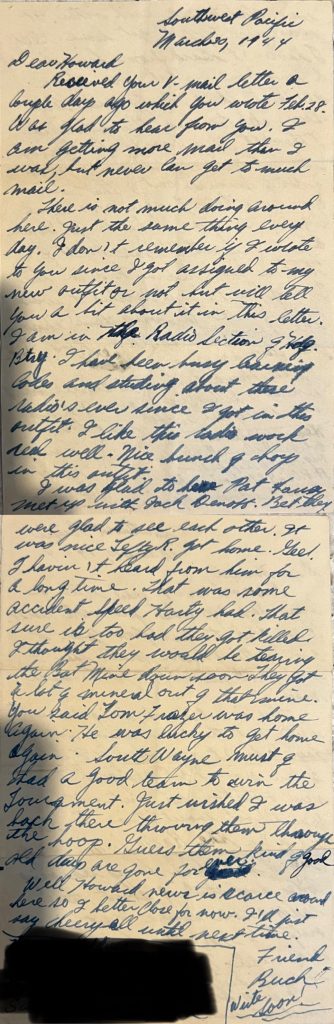 Southwest Pacific
March 20, 1944
Dear Howard
Received your V-mail letter a
couple day ago which you wrote Feb. 28.
Was glad to hear from you. I
am getting more mail then I
was, but never can get to much
mail.
There is not much doing around
here. Just the same thing every
day. I don't remember if I wrote
to you since I got assigned to my
new outfit or not but will tell
you a bit about it in this letter.
I am in the Radio Section of Hdq.
Btry. I have been busy learning
codes and studing about these
radio's ever since I got in this
outfit. I like this radio work
real well. Nice bunch of boys
in this outfit.
I was glad to hear Pat
met up with Jack Bet they
were glad to see each other. It
was nice Lefty R. got home. Gee!
I haven't heard from him for
a long time. That was some
accident Speed Harty had. That
sure is too bad they got killed.
I thought they would be tearing
the Bat Mine down soon. They got
a lot of mineral out of that mine.
You said Tom Frazer was home
again. He was lucky to get home
again. South Wayne must of
had a good team to win the
Tournament. Just wished I was
back there throwing them through
the hoop. Guess them kind of good
old days are gone for ever.
Well Howard news is scarce around
here so I better close for now. I'll just
say cheery all until next time.
Friend
Buch
Write
Soon